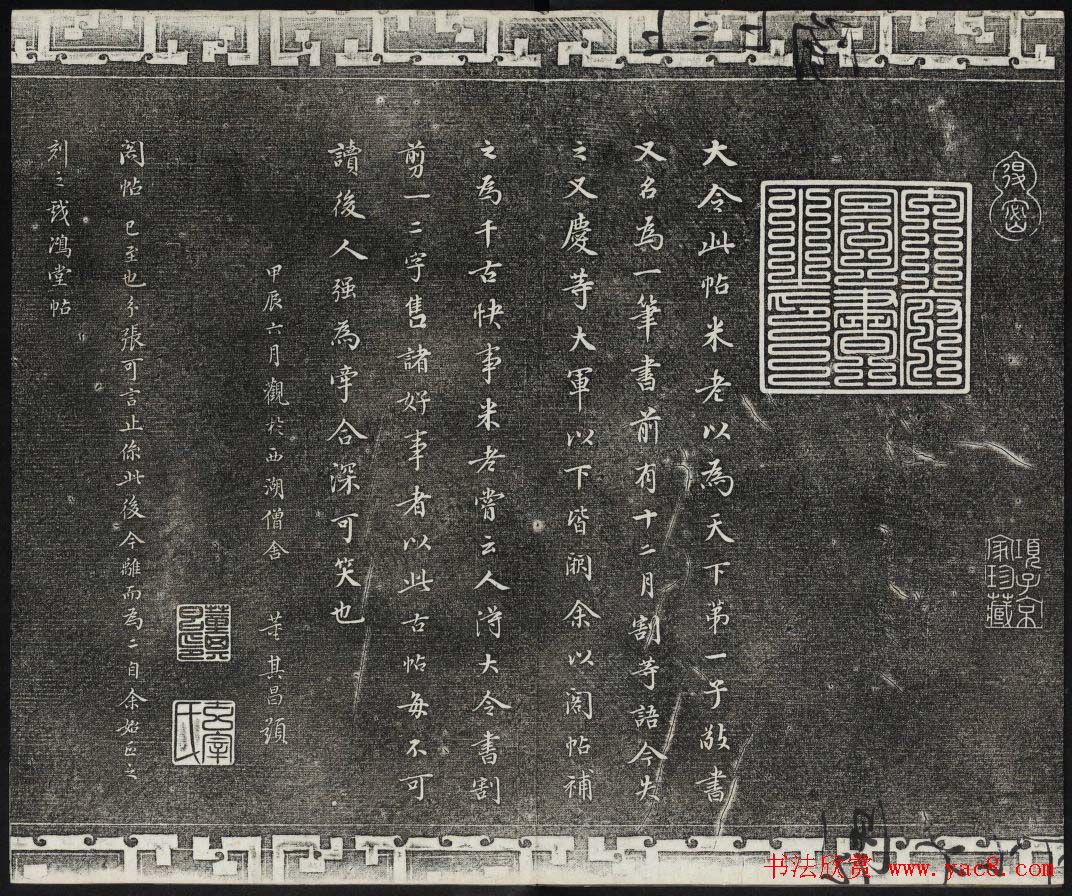 大令此帖米老以為天下第一子敬書
又名為一筆書前有十二月割等語今失
之又慶等大軍以下皆闕余以閣帖補
之為千古快事米老嘗云人得大令書割
剪一二字售諸好事者以此古帖每不可
讀後人强為牽合深可笑也
甲辰六月觀於西湖僧舍 董其昌題
閣帖 已至也分張可言止係此後今離而為二自余始正之
刻之戏鴻堂帖
項子京
家珍藏
書法欣賞 www.yac8.com